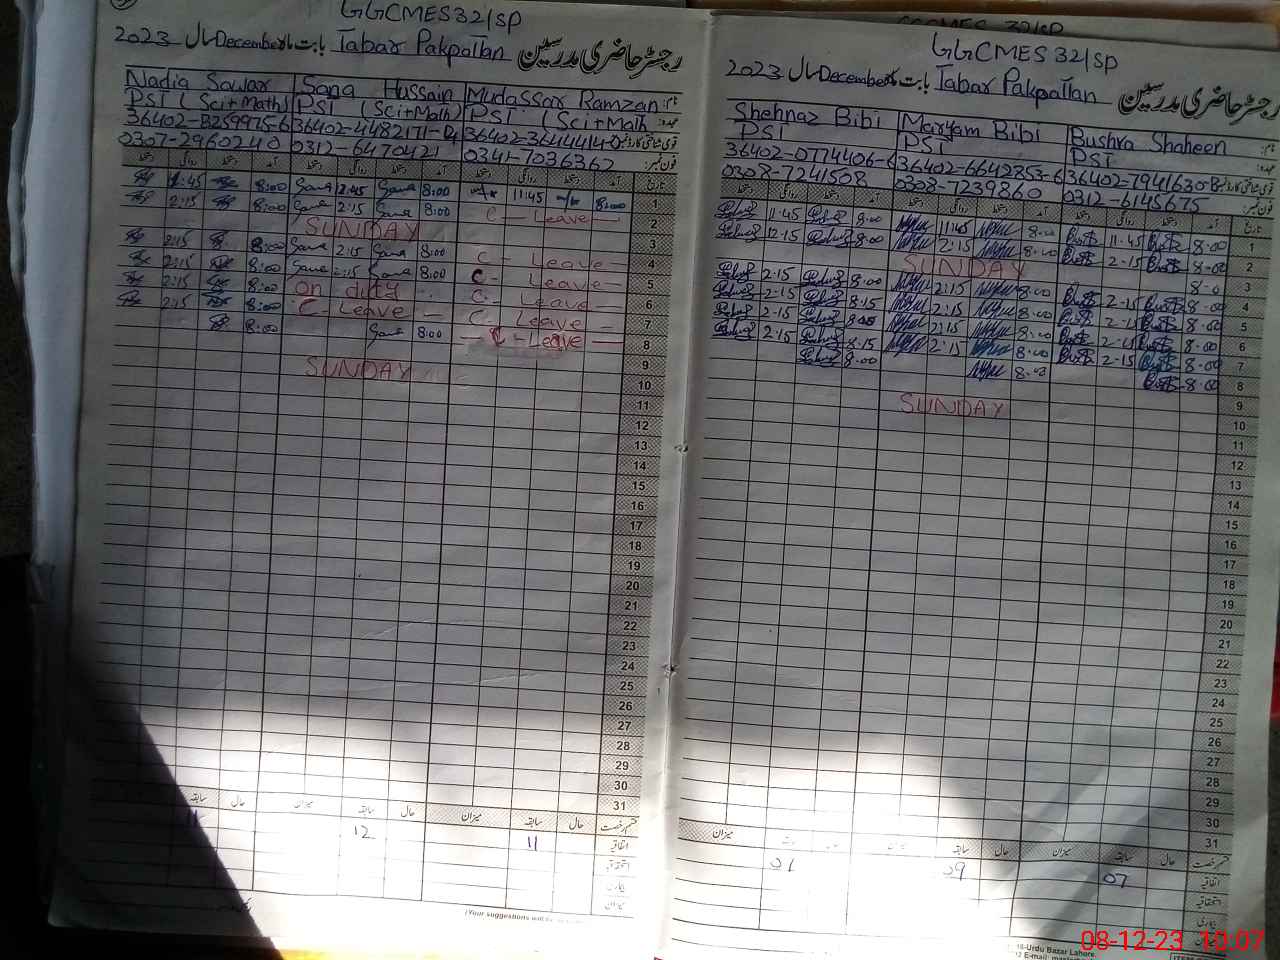 GGCMES 32/SP
رجسٹر حاضری مدرسین Tabar Pakpattan بابت ماہ December سال 2023
Nadia Sarwar Sana Hussain Mudassar Ramzan نام:
PST (Sci+Math) PST (Sci+Math) PST (Sci+Math عہدہ:
36402-8259975-6 36402-4482171-04 36402-3644414-0 قومی شناختی کارڈ نمبر
0307-2960240 0312-6470421 0341-7036362 فون نمبر:
دستخط روانگی دستخط آمد دستخط روانگی دستخط آمد دستخط روانگی دستخط آمد تاریخ
1:45 8:00 Sana 12:45 Sana 8:00 11:45 8:00 1
2:15 8:00 Sana 2:15 Sana 8:00 C - Leave - 2
SUNDAY 3
2:15 8:00 Sana 2:15 Sana 8:00 C - Leave - 4
2:15 8:00 Sana 2:15 Sana 8:00 C - Leave - 5
2:15 8:00 on duty C - Leave 6
2:15 8:00 C - Leave - C - Leave - 7
8:00 Sana 8:00 - C - Leave - 8
9
SUNDAY 10
11
12
13
14
15
16
17
18
19
20
21
22
23
24
25
26
27
28
29
30
31
سابقہ حال میزان سابقہ حال میزان سابقہ حال قسم رخصت
11 12 11 اتفاقیہ
استحقاقیہ
بیماری
میزان
(Your suggestions will be
GGCMES 32/SP
GGCMES 32/SP
رجسٹر حاضری مدرسین Tabar Pakpattan بابت ماہ December سال 2023
Shehnaz Bibi Maryam Bibi Bushra Shaheen نام:
PST PST PST عہدہ:
36402-0774406-6 36402-6642853-6 36402-7941630-8 قومی شناختی کارڈ نمبر
0308-7241508 0308-7239860 0312-6145675 فون نمبر:
دستخط روانگی دستخط آمد دستخط روانگی دستخط آمد دستخط روانگی دستخط آمد تاریخ
11:45 8:00 11:45 8:00 11:45 8:00 1
12:15 8:00 2:15 8:00 2:15 8:00 2
SUNDAY 8:0 3
2:15 8:00 2:15 8:00 2:15 8:00 4
2:15 8:15 2:15 8:00 2:15 8:00 5
2:15 8:00 2:15 8:00 2:15 8:00 6
2:15 8:15 2:15 8:00 2:15 8:00 7
8:00 8:00 8:00 8
9
SUNDAY 10
11
12
13
14
15
16
17
18
19
20
21
22
23
24
25
26
27
28
29
30
31
میزان میزان سابقہ حال میزان سابقہ حال قسم رخصت
01 09 07 اتفاقیہ
استحقاقیہ
بیماری
-Urdu Bazar Lahore.
E-mail:
08-12-23 10:07